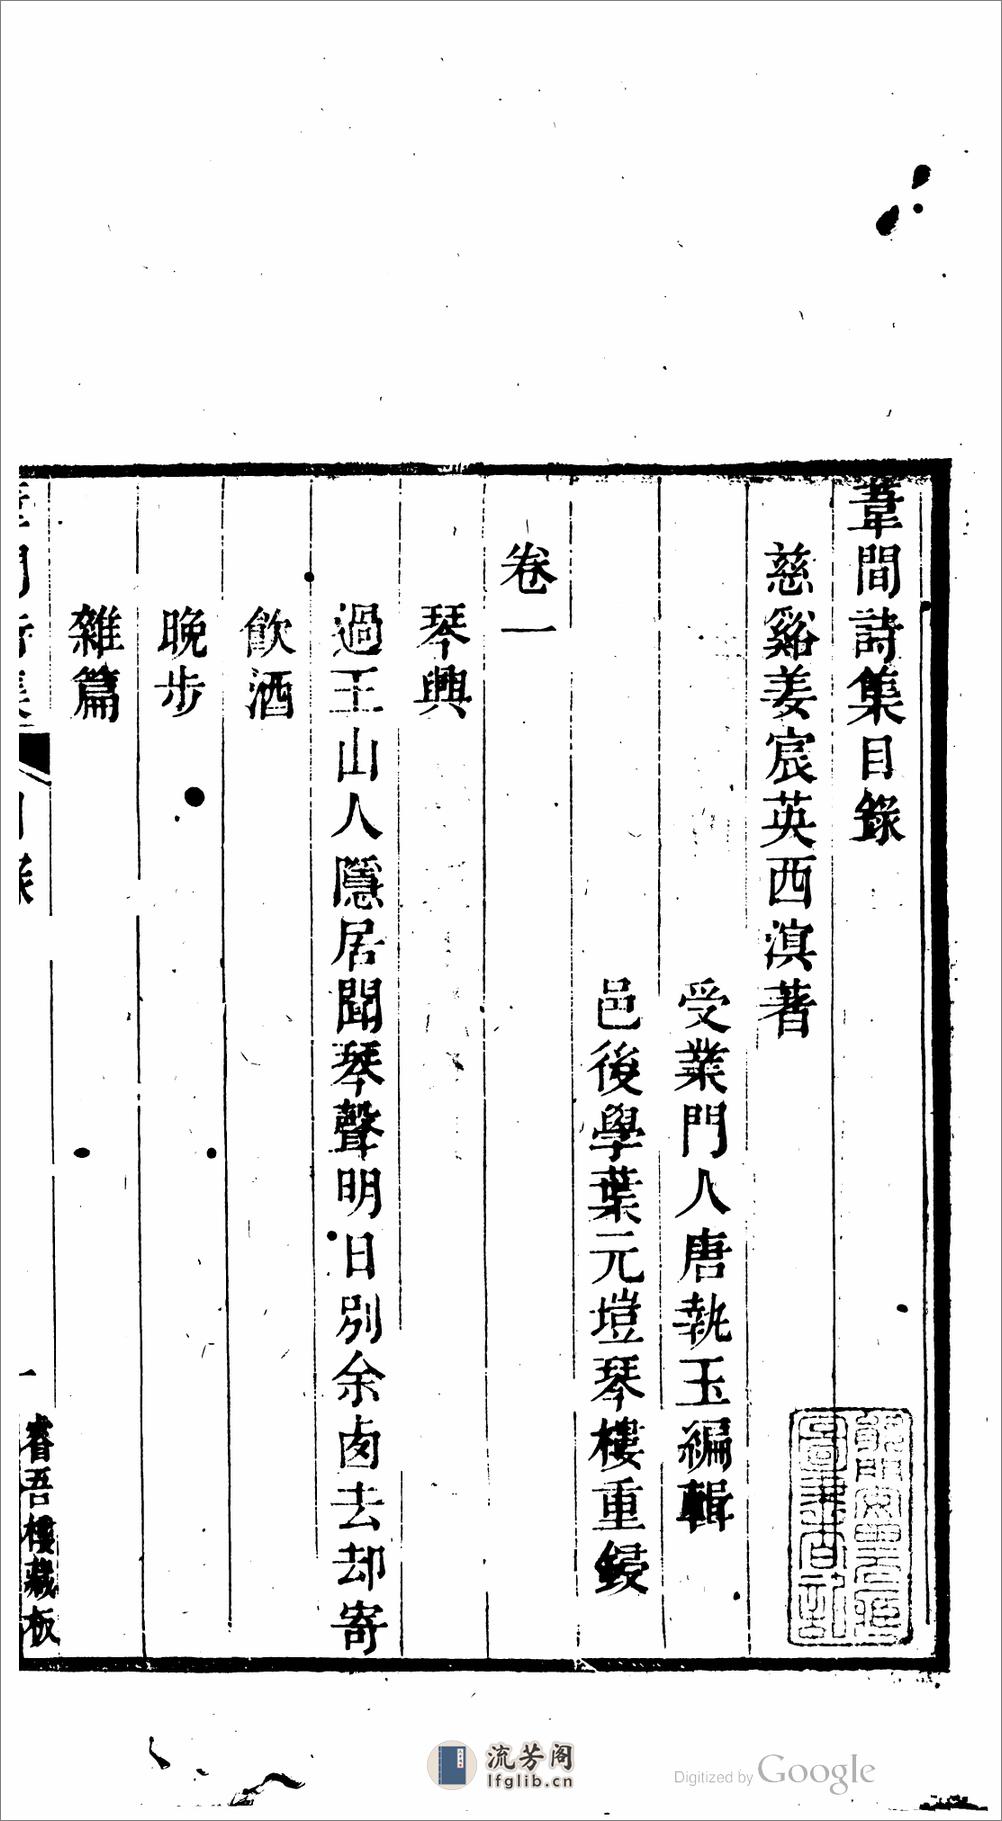 葦間詩集目錄
慈谿姜宸英西溟著
受業門人唐執玉編輯
邑後學葉元塏琴樓重鋟
卷一
琴興
過王山人隱居聞琴聲明日別余卤去却寄
飲酒
晚步
雜篇
一
睿吾樓藏板
流芳阁
lfglib.cn
Digitized by Google